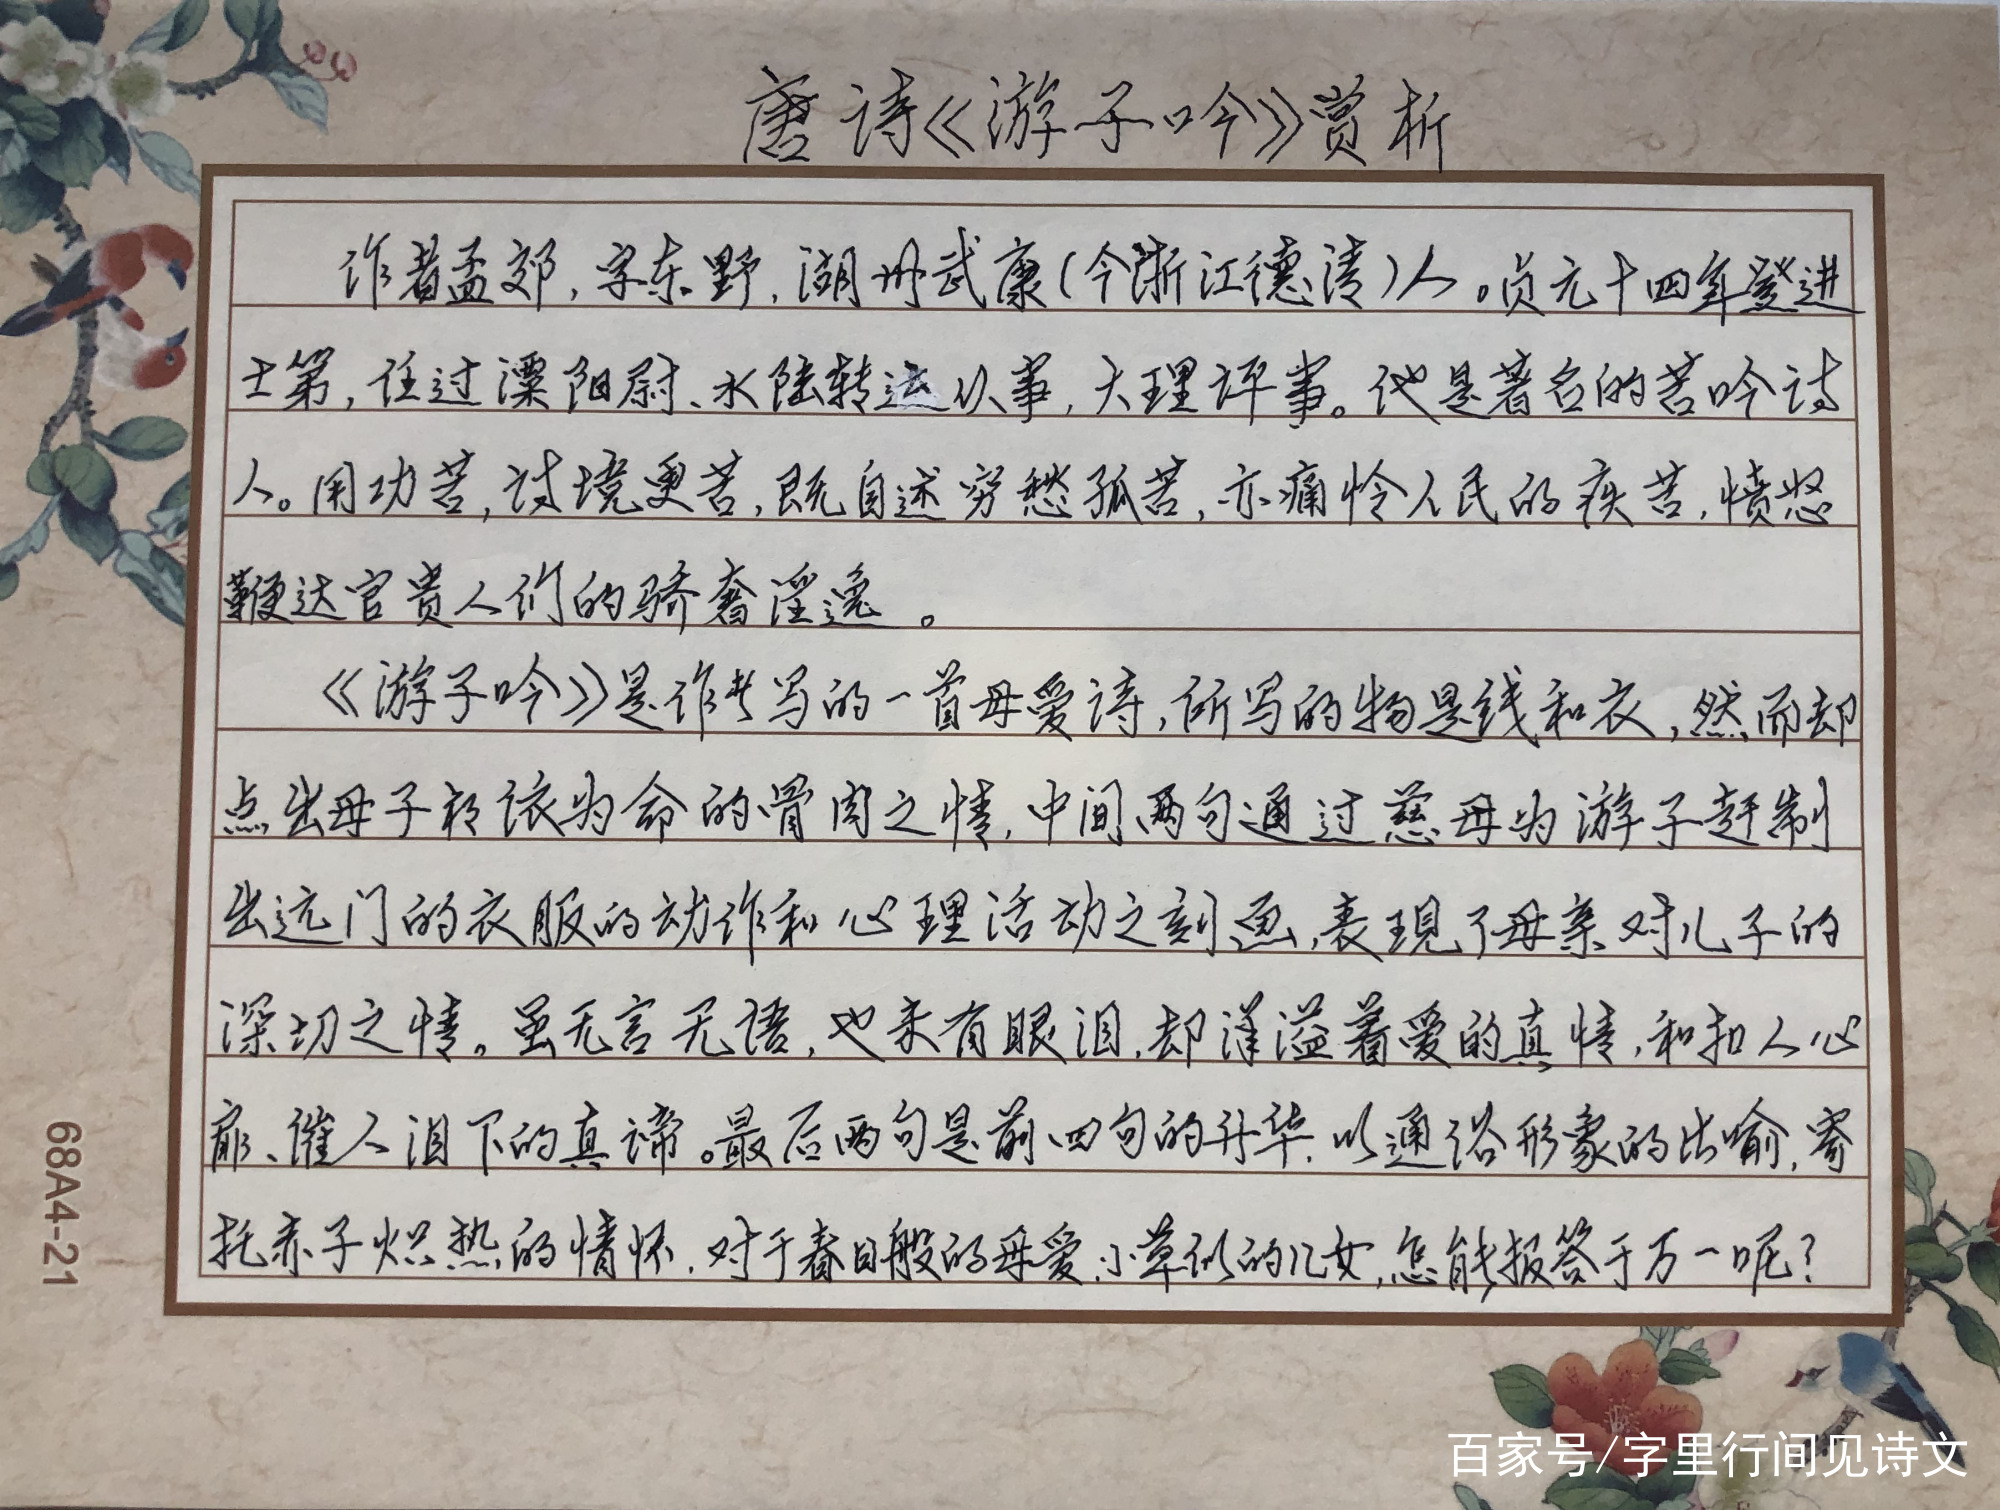 唐诗《游子吟》赏析
作者孟郊,字东野,湖州武康(今浙江德清)人。贞元十四年登进
士第,任过溧阳尉、水陆转运从事,大理评事。他是著名的苦吟诗
人。用功苦,诗境更苦,既自述穷愁孤苦,亦痛怜人民的疾苦,愤怒
鞭达官贵人们的骄奢淫逸。
《游子吟》是作者写的一首母爱诗,所写的物是线和衣,然而却
点出母子相依为命的骨肉之情,中间两句通过慈母为游子赶制
出远门的衣服的动作和心理活动之刻画,表现了母亲对儿子的
深切之情。虽无言无语,也未有眼泪,却洋溢着爱的真情,和扣人心
扉、催人泪下的真谛。最后两句是前四句的升华,以通俗形象的比喻,寄
托赤子炽热的情怀,对于春日般的母爱,小草似的儿女,怎能报答于万一呢?
68A4-21
百家号/字里行间见诗文